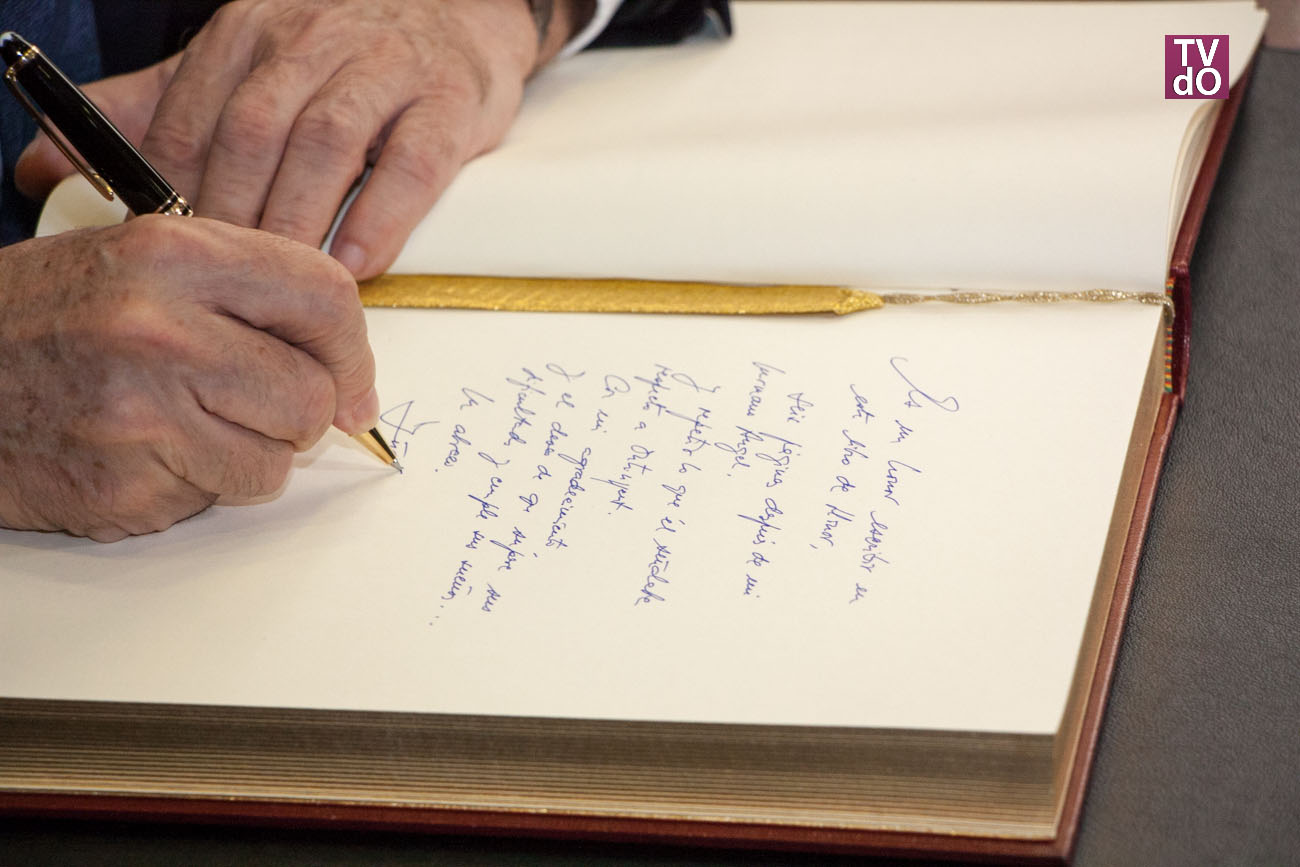 TV
dO
Es un honor escribir en
este Libro de Honor,
seis páginas después de mi
hermano Ángel.
Y repetir lo que él señalaba
respecto a Ontinyent.
Con mi agradecimiento
y el deseo de que supere sus
dificultades y cumpla sus sueños...
Un abrazo.